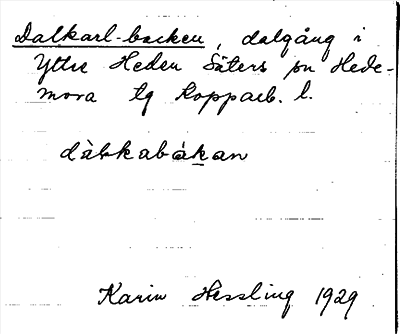 Dalkarl-backen, dalgång i
Yttre Heden Säters sn Hede-
mora tg Kopparb. l.
dàlkabákan
Karin Hessling 1929